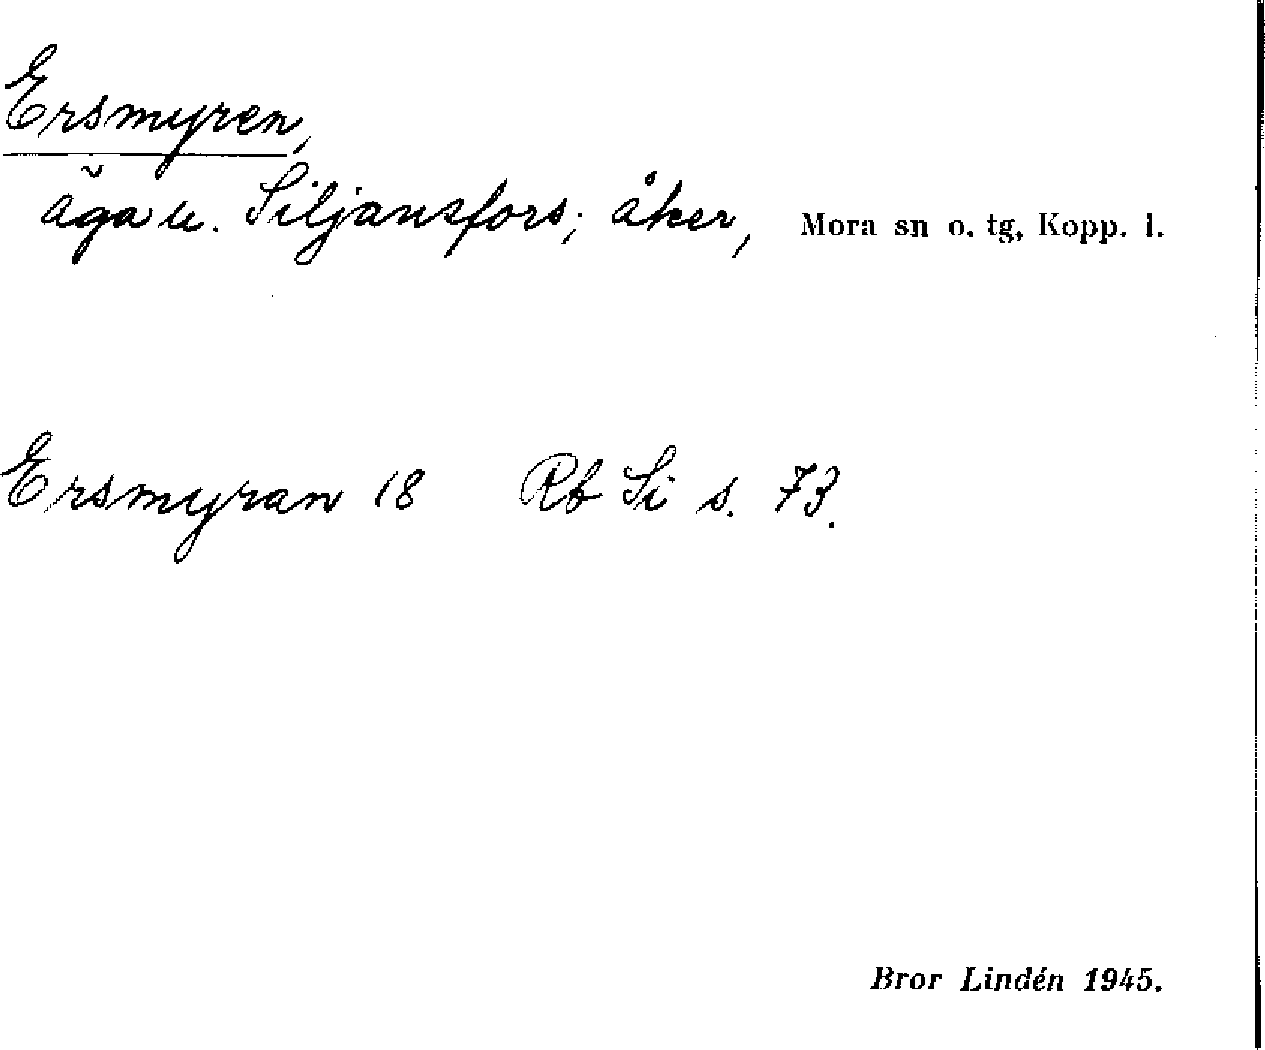 Ersmyren,
äga u. Siljansfors; åker, Mora sn o. tg, Kopp. l.
Ersmyran 18 Rb Si s. 73.
Bror Lindén 1945.